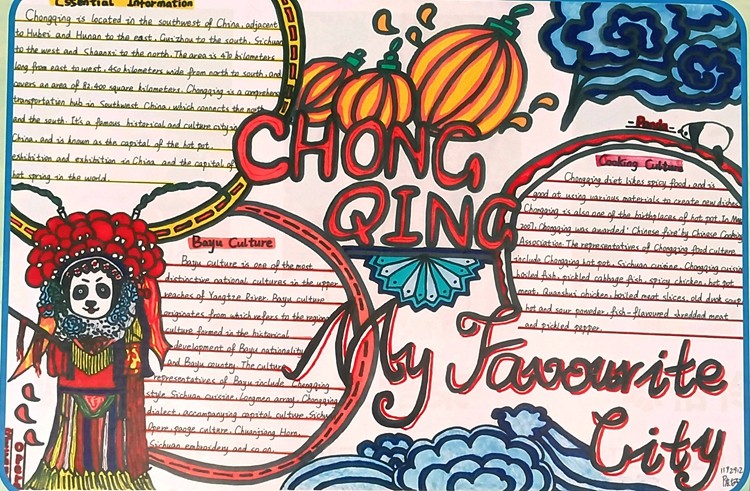 Essential Information
Chongqing is located in the southwest of China, adjacent
to Hubei and Hunan to the east, Guizhou to the south, Sichuan
to the west and Shaanxi to the north. The area is 470 kilometers
long from east to west, 450 kilometers wide from north to south, and
covers an area of 82,400 square kilometers. Chongqing is a comprehen
transportation hub in Southwest China, which connects the north
and the south. It's a famous historical and cultural city in
China and is known as the capital of the hot pot,
exhibition and exhibition in China, and the capital of
hot spring in the world.
CHONG
QING
My Favourite
City
Bayu Culture
Bayu culture is one of the most
distinctive national cultures in the upper
reaches of Yangtze River. Bayu culture
originates from which refers to the region
culture formed in the historical
development of Bayu nationality
and Bayu country. The cultural
representatives of Bayu include Chongqing
style Sichuan cuisine, Longmen array, Chongqing
dialect, accompanying capital culture, Sichuan
Opera, page culture, Chuanjiang Horn,
Sichuan embroidery and so on.
Panda
Cooking Culture
Chongqing diet likes spicy food, and is
good at using various materials to create new dishes.
Chongqing is also one of the birthplaces of hot pot. In May
2007, Chongqing was awarded "Chinese five" by Chinese Cooking
Association. The representatives of Chongqing food culture
include Chongqing hot pot, Sichuan cuisine, Chongqing cuisine
boiled fish, pickled cabbage fish, spicy chicken, hot pot
meat, Quanshui chicken, boiled meat slices, old duck soup,
hot and sour powder, fish-flavoured shredded meat
and pickled pepper.
Opera